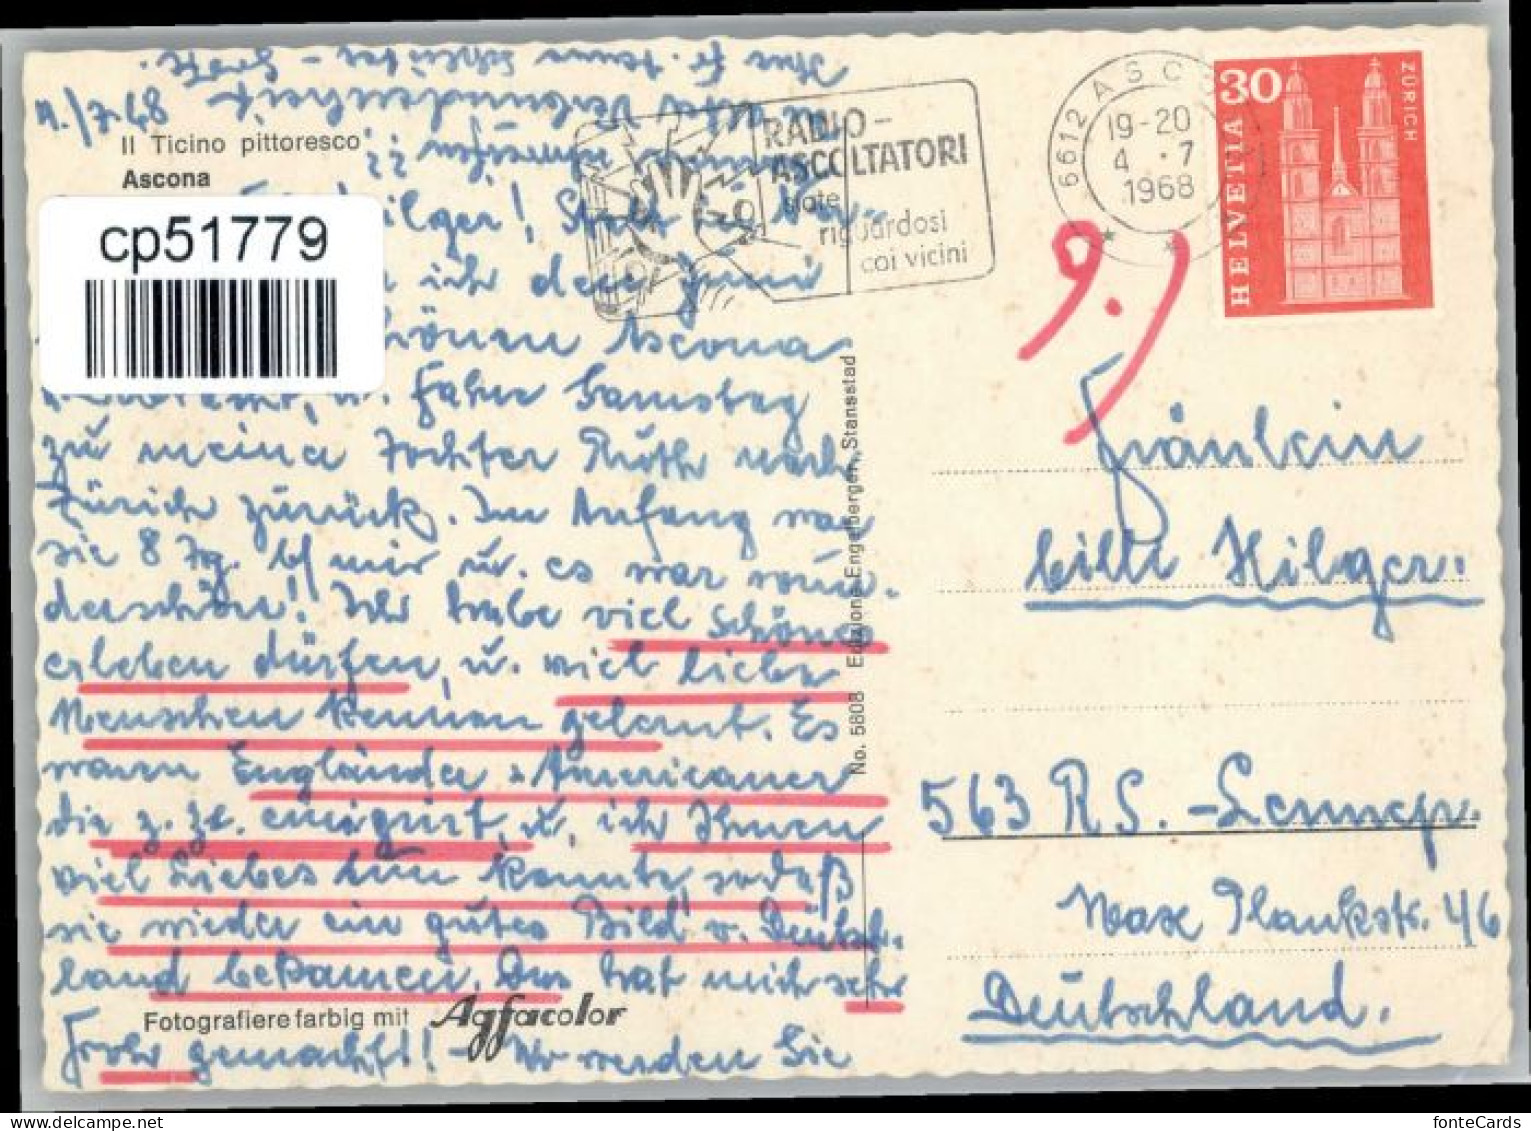 4./7.68
Il Ticino pittoresco
Ascona
cp51779
Hilger!
ich den Juni
schönen Ascona
u. fahre Samstag
zu meiner Tochter Ruth nach
Zürich zurück. Im Anfang war
sie 8 Tg. b/ mir u. es war wun-
derschön! Ich habe viel schönes
erleben dürfen, u. viel liebe
Menschen kennen gelernt. Es
waren Engländer & Americaner
die z. Zt. emigriert, u. ich Ihnen
viel Liebes tun konnte, sodaß
sie wieder ein gutes Bild v. Deutsch-
land bekamen. Das hat mich sehr
Froh gemacht! - Wo werden Sie
schreiben ??
alter Verbundenheit
Ihre Fr. Schlüter -
Fotografiere farbig mit Agfacolor
No. 5808 Edizione Engelberger, Stansstad
RADIO-
ASCOLTATORI
siate
riguardosi
coi vicini
6612 ASCO
19-20
4.7
1968
30
HELVETIA
ZÜRICH
9.)
Fräulein
Hilger.
563 RS.-Lennep.
Max Plankstr. 46
Deutschland.
fonteCards